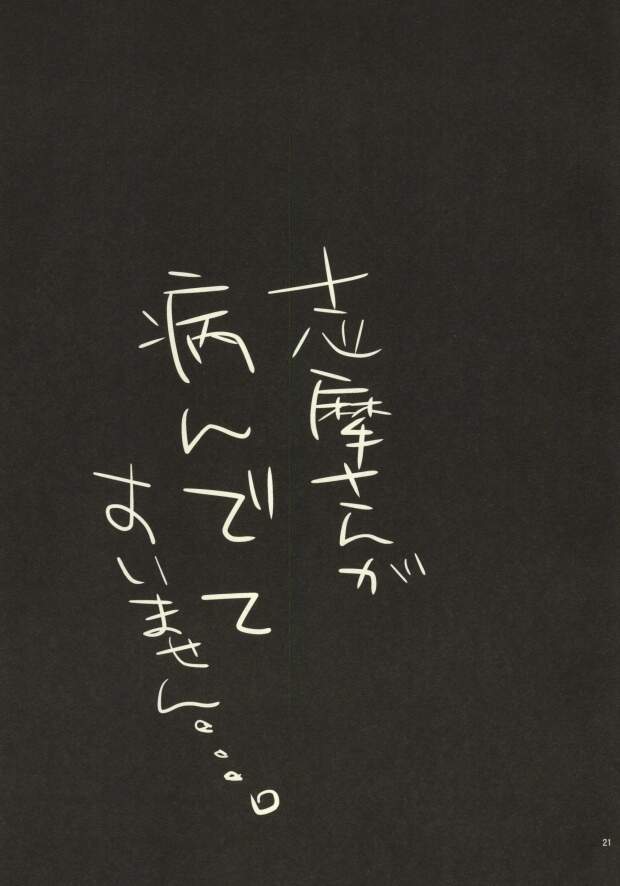 志摩さんが
病んでて
すいません。。。。
21